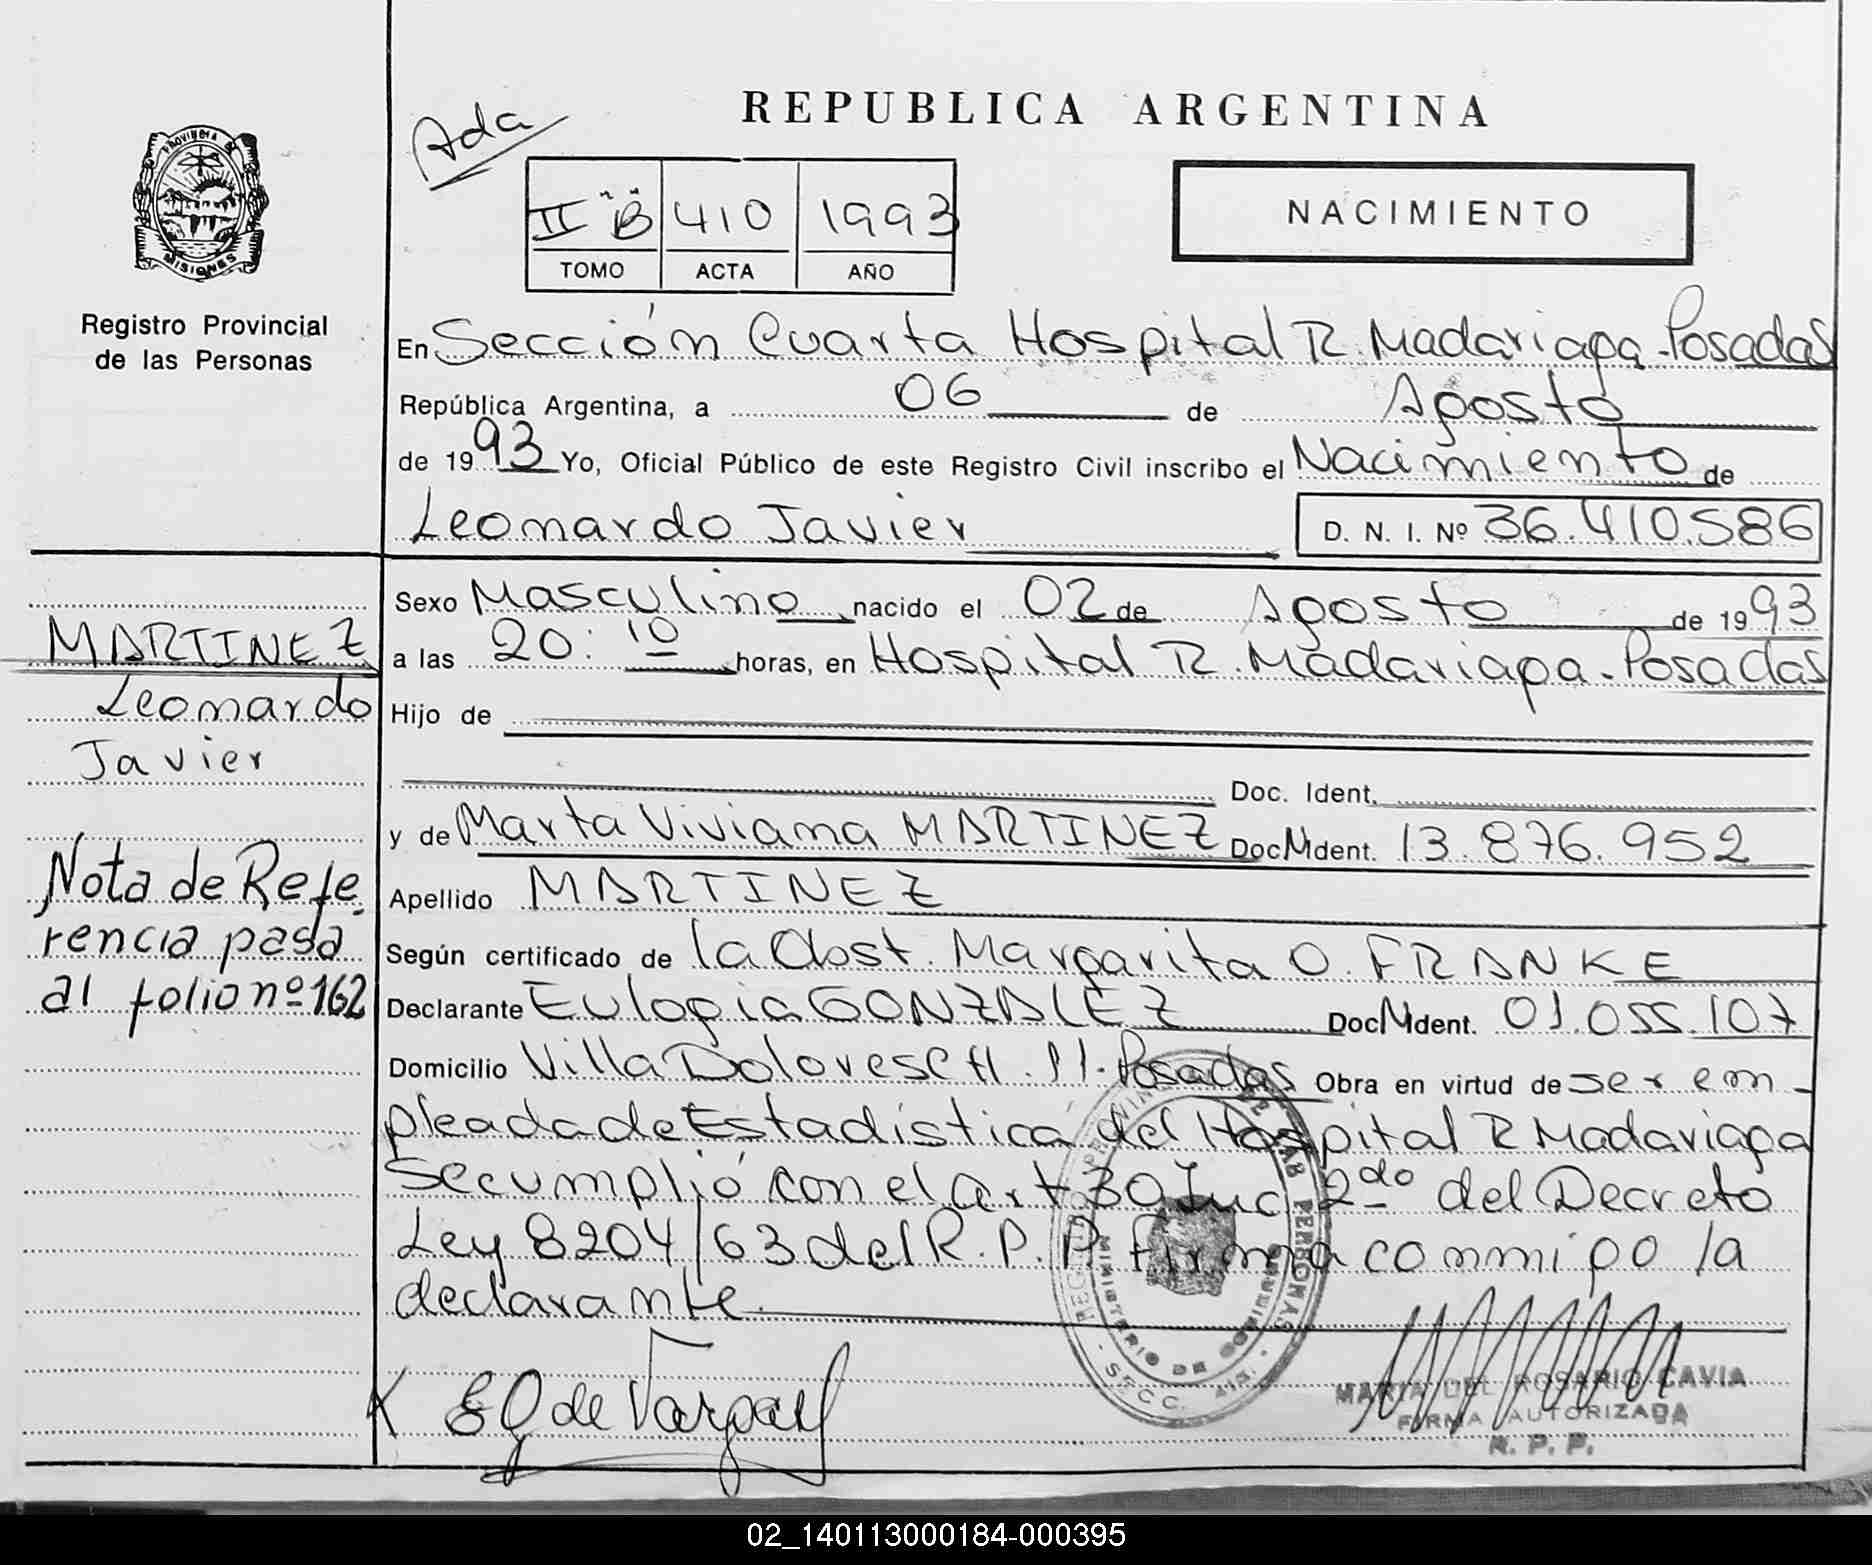 REPUBLICA ARGENTINA
Ada
PROVINCIA DE
MISIONES
Registro Provincial
de las Personas
II "B" 410 1993
TOMO ACTA AÑO
NACIMIENTO
En Sección Cuarta Hospital R. Madariaga - Posadas
República Argentina, a 06 de Agosto
de 1993 Yo, Oficial Público de este Registro Civil inscribo el Nacimiento de
Leonardo Javier D. N. I. Nº 36.410.586
Sexo Masculino nacido el 02 de Agosto de 1993
a las 20:10 horas, en Hospital R. Madariaga - Posadas
Hijo de
Doc. Ident.
y de Marta Viviana MARTINEZ Doc. Ident. 13.876.952
Apellido MARTINEZ
Según certificado de la Obst. Margarita O. FRANKE
Declarante Eulogia GONZALEZ Doc. Ident. 01.055.107
Domicilio Villa Dolores CH. 11. Posadas Obra en virtud de ser em-
pleada de Estadística del Hospital R Madariaga
Se cumplió con el art 30 Inc 2do del Decreto
Ley 8204/63 del R.P.P. Firma conmigo la
declarante.
MARTINEZ
Leonardo
Javier
Nota de Refe-
rencia pasa
al folio nº 162
E G de Vargas
REGISTRO PROVINCIAL DE LAS PERSONAS
MINISTERIO DE GOBIERNO
SECC. 4ta.
MARIA DEL ROSARIO CAVIA
FIRMA AUTORIZADA
R. P. P.
02_140113000184-000395